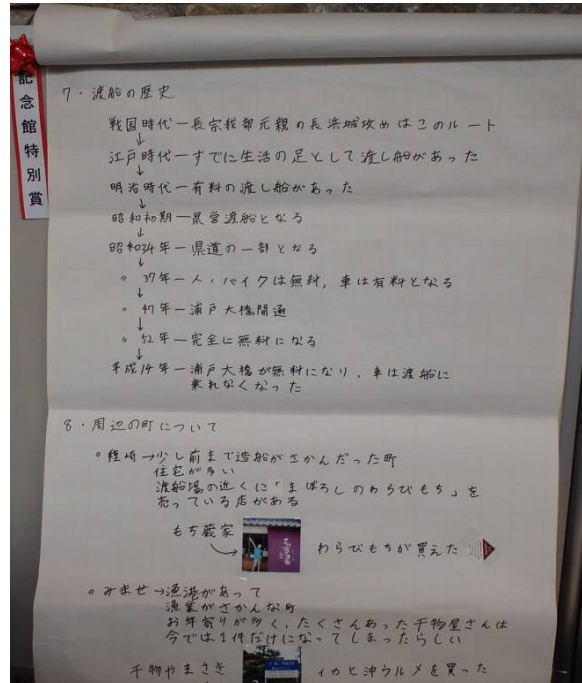 記念館特別賞
7・渡船の歴史
戦国時代ー長宗我部元親の長浜城攻めはこのルート
↓
江戸時代ーすでに生活の足として渡し船があった
↓
明治時代ー有料の渡し船があった
↓
昭和初期ー県営渡船となる
↓
昭和34年ー県道の一部となる
↓
〃 37年ー人・バイクは無料, 車は有料となる
↓
〃 47年ー浦戸大橋開通
↓
〃 52年ー完全に無料になる
↓
平成14年ー浦戸大橋が無料になり、車は渡船に
乗れなくなった
8・周辺の町について
○種崎→少し前まで造船がさかんだった町
住宅が多い
渡船場の近くに「まぼろしのわらびもち」を
売っている店がある
もち蔵家
わらびもちが買えた
○みませ→漁港があって
漁業がさかんな町
お年寄りが多く、たくさんあった干物屋さんは
今では1件だけになってしまったらしい
干物やまさき
イカと沖ウルメを買った